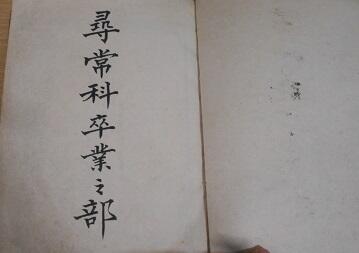 尋常科卒業之部